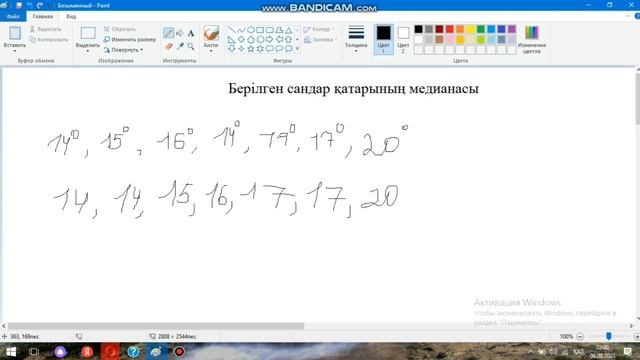 Безымянный - Paint
WWW.BANDICAM.COM
Файл Главная Вид
Вставить Вырезать Копировать Выделить Обрезать Изменить размер Повернуть Кисти Толщина Цвет 1 Цвет 2 Изменение цветов
Буфер обмена Изображение Инструменты Фигуры Цвета
Берілген сандар қатарының медианасы
14°, 15°, 16°, 14°, 19°, 17°, 20°
14, 14, 15, 16, 17, 17, 20
Активация Windows
Чтобы активировать Windows, перейдите в
раздел "Параметры".
363, 169пкс 2808 × 2544пкс 100%
ҚАЗ 22:00
06.08.2021